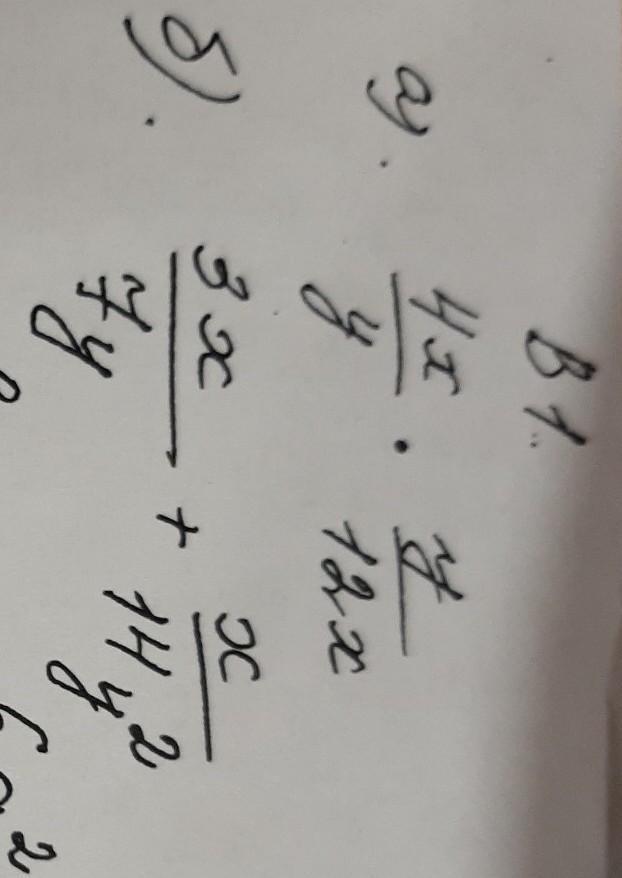 В 1.
а). 4x/y · y/12x
б). 3x/7y + x/14y²